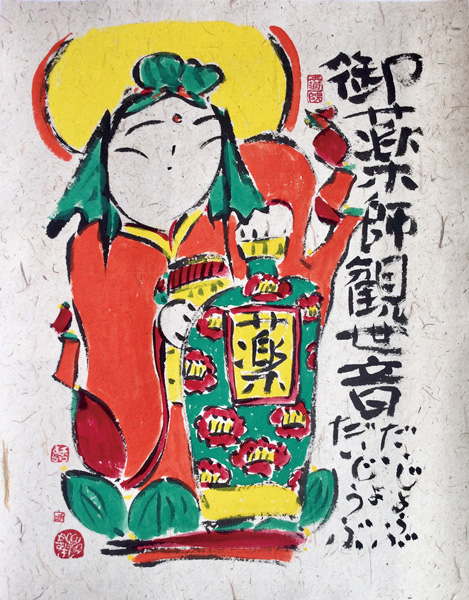 御薬師観世音
だいじょうぶ
だいじょうぶ
薬